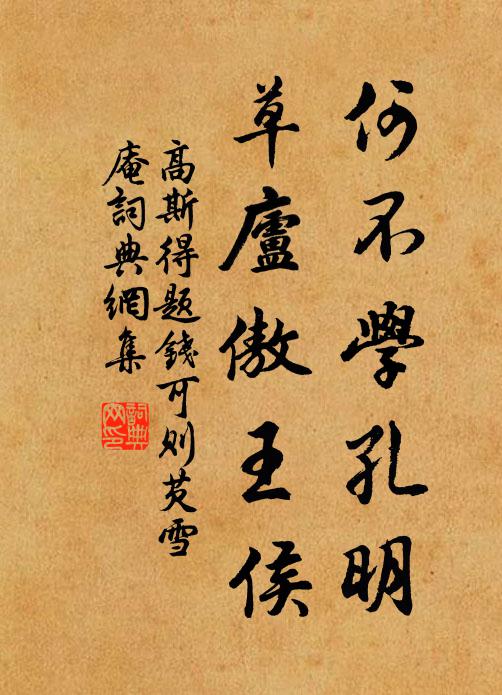 何不學孔明
草廬傲王侯
高斯得題錢可則芡雪
庵詞典網集
詞典
网印